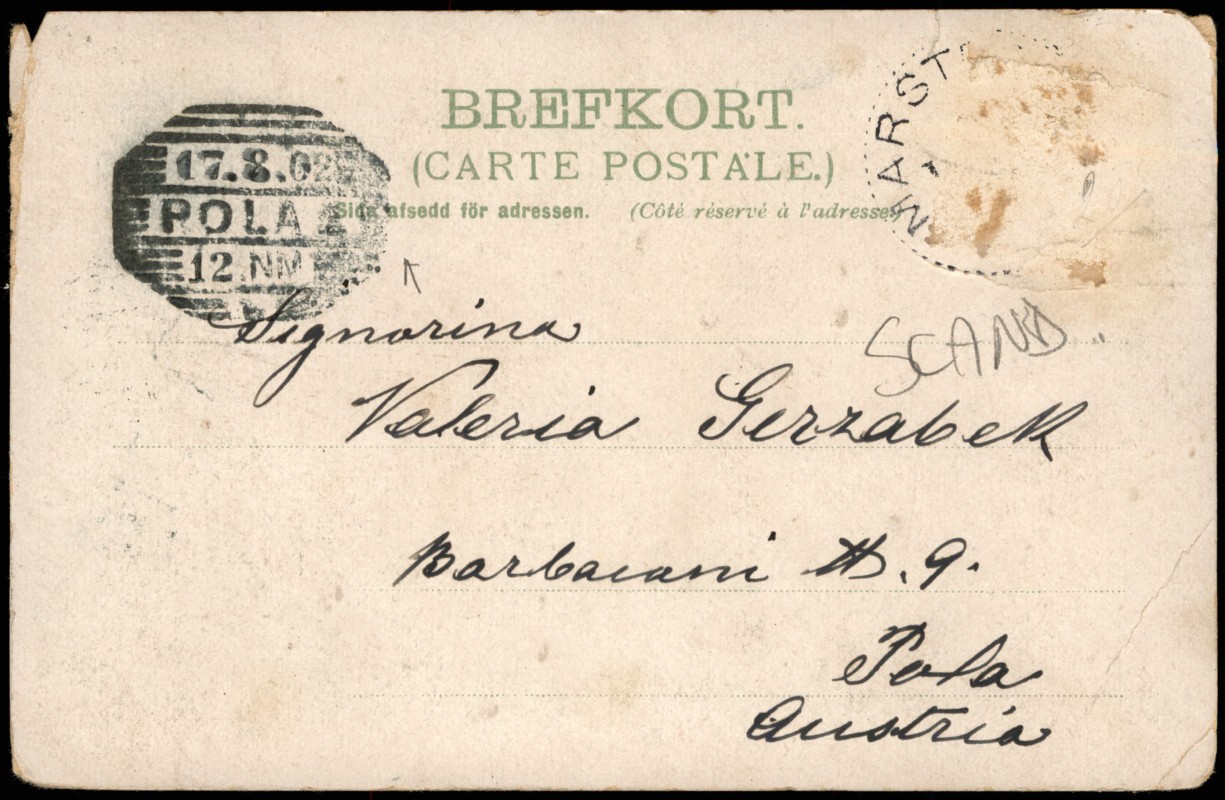 BREFKORT.
(CARTE POSTALE.)
Sida afsedd för adressen. (Côté réservé à l'adresse)
17.8.02
POLA
12.NM
MARST
SCAND..
Signorina
Valeria Gerzabek
Barbacani N. 9.
Pola
Austria